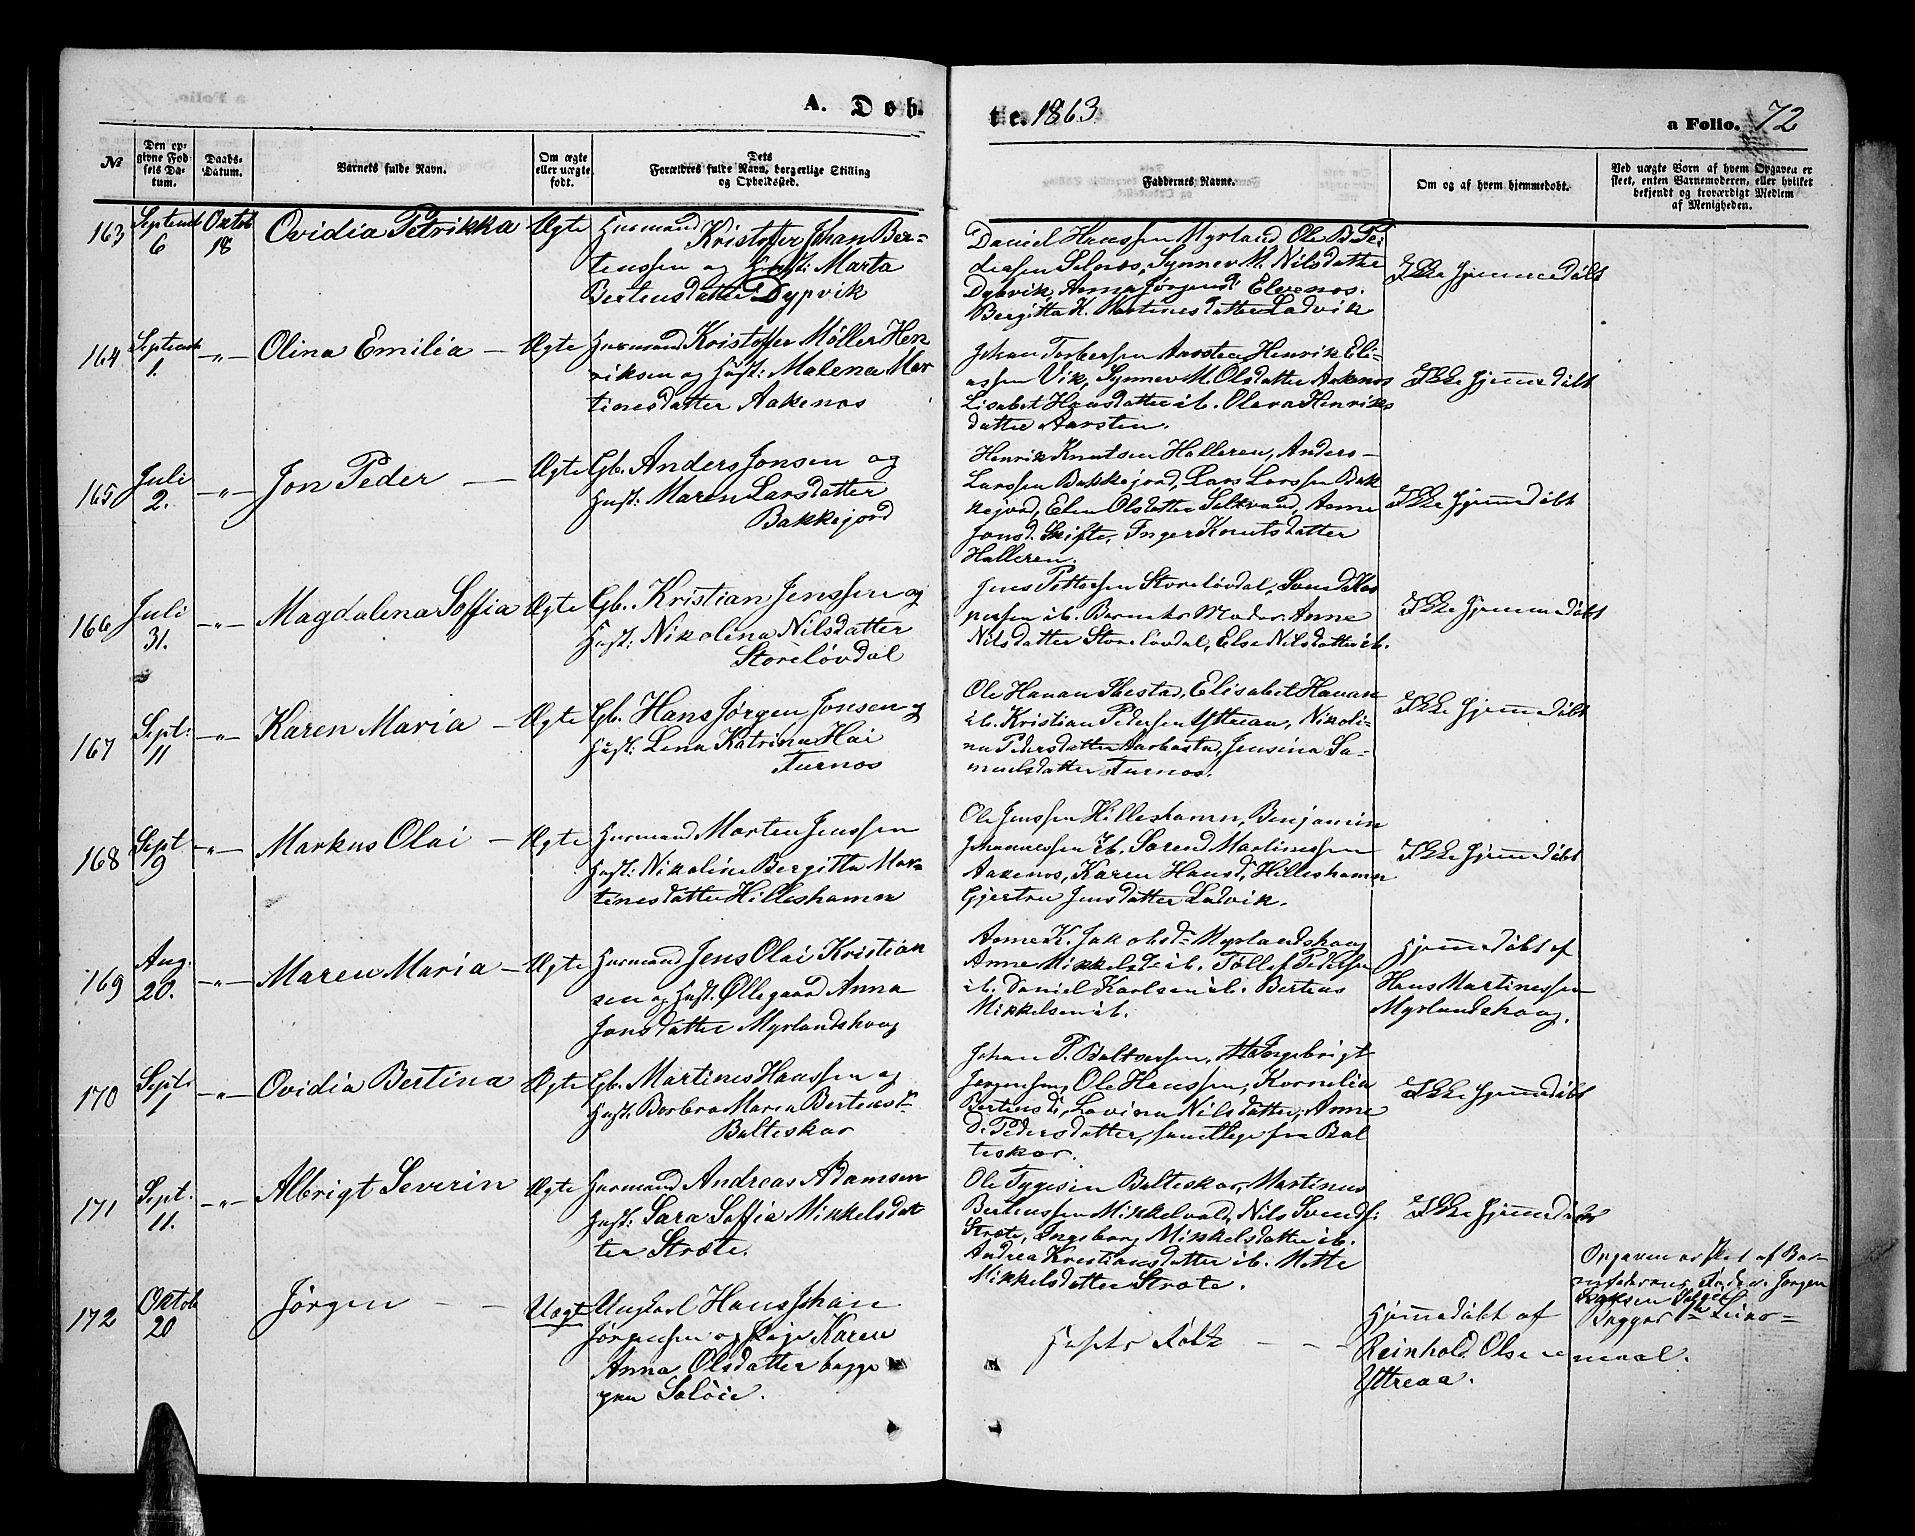 A. Døb
te. 1863
a Folio. 72
№
Den op-
givne Fød-
sels Da-
tum.
Daabs-
Datum.
Barnets fulde Navn.
Om ægte
eller uægte
født.
Dets
Forældres fulde Navn, borgerlige Stilling
og Opholdssted.
Faddernes Navne.
Om og af hvem hjemmedøbt.
Ved uægte Børn af hvem Opgaven er
skeet, enten Barnemoderen, eller hvilket
bekjendt og troværdigt Medlem
af Menigheden.
163 Septemb 6 Oktob 18 Ovidia Petrikka Ægte Husmand Kristoffer Johan Ber-
tenssen og Hust: Marta
Bertensdatter Dypvik
Daniel Hanssen Myrland, Ole B. Pe-
dersen Selnæs, Synnev M. Nilsdatter
Dypvik, Anna Jørgensd: Elvenos.
Bergitta K. Martinesdatter Ladvik
Ikke hjemmedøbt
164 Septemb 1. -„- Olina Emilia Ægte Husmand Kristoffer Møller Hen
riksen og Hust: Malena Mar
tinesdatter Aakenos
Johan Torbersen Aarsten Henrik Eli-
assen Vik, Synnev M. Olsdatter Aakenos
Lisabet Hansdatter ib. Olava Henriks
datter Aarsten.
Ikke hjemmedøbt
165 Juli 2. -„- Jon Peder Ægte Gb. Anders Jonsen og
Hust: Maren Larsdatter
Bakkejord
Henrik Knutsen Halleren, Anders
Larssen Bakkejord, Lars Larssen Bak
kejord, Elen Olsdatter Saltvand, Anne
Jonsd. Skifte, Inger Knutsdatter
Halleren.
Ikke hjemmedøbt
166 Juli 31. -„- Magdalena Soffia Ægte Gb. Kristian Jenssen og
Hust: Nikolina Nilsdatter
Storeløvdal
Jens Pettersen Storeløvdal, Svend Kas
persen ib. Barnets Moder. Anne
Nilsdatter Storeløvdal, Else Nilsdatter ib.
Ikke hjemmedøbt
167 Sept: 11 -„- Karen Maria Ægte Gb. Hans Jørgen Jonsen og
Hust: Lena Katrina Hai
Furnos
Ole Hanan Ibestad, Elisabet Hanan
ib. Kristian Pedersen Yttreaa, Nikoli-
na Pedersdatter Aarbostad, Jensina Sa-
muelsdatter Furnos.
Ikke hjemmedøbt
168 Sept 9 -„- Markus Olai Ægte Husmand Morten Jenssen
Hust: Nikoline Bergitta Mar-
tinesdatter Hilleshamn
Ole Jenssen Hilleshamn, Benjamin
Johannessen ib. Søren Martinessen
Aakenos, Karen Hansd, Hilleshamn
Gjertru Jensdatter Ladvik.
Ikke hjemmedøbt
169 Aug. 20. -„- Maren Maria Ægte Husmand Jens Olai Kristian
sen og Hust: Øllegaard Anna
Jonsdatter Myrlandshaag
Anne K. Jakobsdr Myrlandshaag
Anne Mikkelsdr ib. Tollef Pedersen
ib. Daniel Karlsen ib. Bertens
Mikkelsen ib.
Hjemmedøbt af
Hans Martinessen
Myrlandshaag.
170 Sept: 1 -„- Ovidia Bertina Ægte Gb. Martines Hanssen og
Hust: Barbro Maren Bertensdr
Balteskar
Johan P. Baltsersen, Ingebrigt
Jørgensen, Ole Hanssen, Kornelia
Bertensd:, Lavina Nilsdatter, Anne
D. Pedersdatter, samtlige fra Bal
teskar.
Ikke hjemmedøbt
171 Sept. 11. -„- Albrigt Severin Ægte Husmand Andreas Adamsen
Hust: Sara Soffia Mikkelsdat
ter Strøte.
Ole Tygesen Balteskar, Martinus
Bertenssen Mikkelvold, Nils Svends:
Strøte, Ingeborg Mikkelsdatter ib.
Andrea Kristiansdatter ib. Mette
Mikkelsdatter Strøte.
Ikke hjemmedøbt
172 Oktob 20 Jørgen Uægt Ungkarl Hans Johan
Jørgensen og Pige Karen
Anna Olsdatter begge
paa Saløie.
Husets Folk
Hjemmedøbt af
Reinhold Olsen
Yttreaa.
Opgaven er sket af Bar-
nefaderens Fader Jørgen